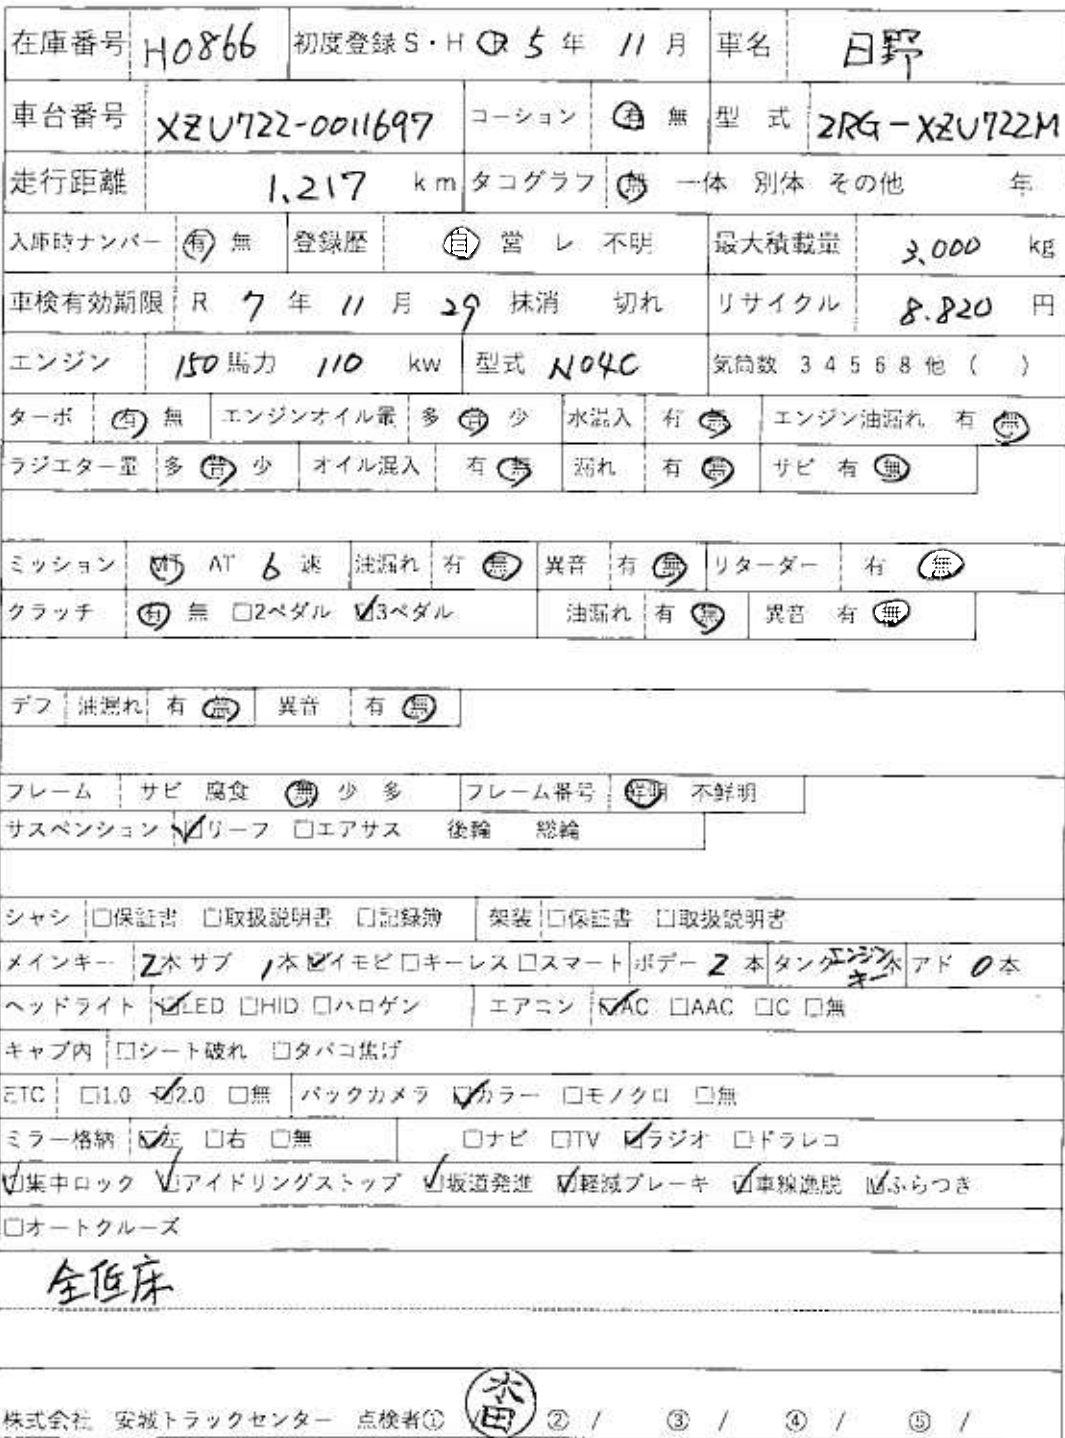 在庫番号 H0866 初度登録 S・H・R 5 年 11 月 車名 日野
車台番号 XZU722-0011697 コーション 有 無 型 式 2RG-XZU722M
走行距離 1,217 km タコグラフ 無 一体 別体 その他 年
入庫時ナンバー 有 無 登録歴 自 営 レ 不明 最大積載量 3,000 kg
車検有効期限 R 7 年 11 月 29 抹消 切れ リサイクル 8.820 円
エンジン 150 馬力 110 kw 型式 N04C 気筒数 3 4 5 6 8 他 ( )
ターボ 有 無 エンジンオイル量 多 普 少 水混入 有 無 エンジン油漏れ 有 無
ラジエター量 多 普 少 オイル混入 有 無 漏れ 有 無 サビ 有 無
ミッション MT AT 6 速 油漏れ 有 無 異音 有 無 リターダー 有 無
クラッチ 有 無 □2ペダル ☑3ペダル 油漏れ 有 無 異音 有 無
デフ 油漏れ 有 無 異音 有 無
フレーム サビ 腐食 無 少 多 フレーム番号 鮮明 不鮮明
サスペンション ☑リーフ □エアサス 後輪 総輪
シャシ □保証書 □取扱説明書 □記録簿 架装 □保証書 □取扱説明書
メインキー 2本 サブ 1本 ☑イモビ □キーレス □スマート ボデー 2 本 タンク エンジンキー 本 アド 0 本
ヘッドライト ☑LED □HID □ハロゲン エアコン ☑AC □AAC □C □無
キャブ内 □シート破れ □タバコ焦げ
ETC □1.0 ☑2.0 □無 バックカメラ ☑カラー □モノクロ □無
ミラー格納 ☑左 □右 □無 □ナビ □TV ☑ラジオ □ドラレコ
☑集中ロック ☑アイドリングストップ ☑坂道発進 ☑軽減ブレーキ ☑車線逸脱 ☑ふらつき
□オートクルーズ
全低床
株式会社 安城トラックセンター 点検者① ② / ③ / ④ / ⑤ /